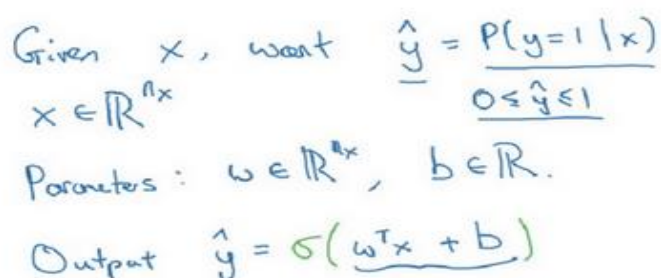 Given x, want ŷ = P(y=1 | x)
x ∈ ℝⁿˣ 0 ≤ ŷ ≤ 1
Parameters: w ∈ ℝⁿˣ, b ∈ ℝ.
Output ŷ = σ(wᵀx + b)